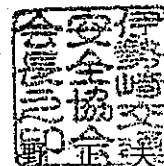 伊勢崎交通
安全協会
会長之印